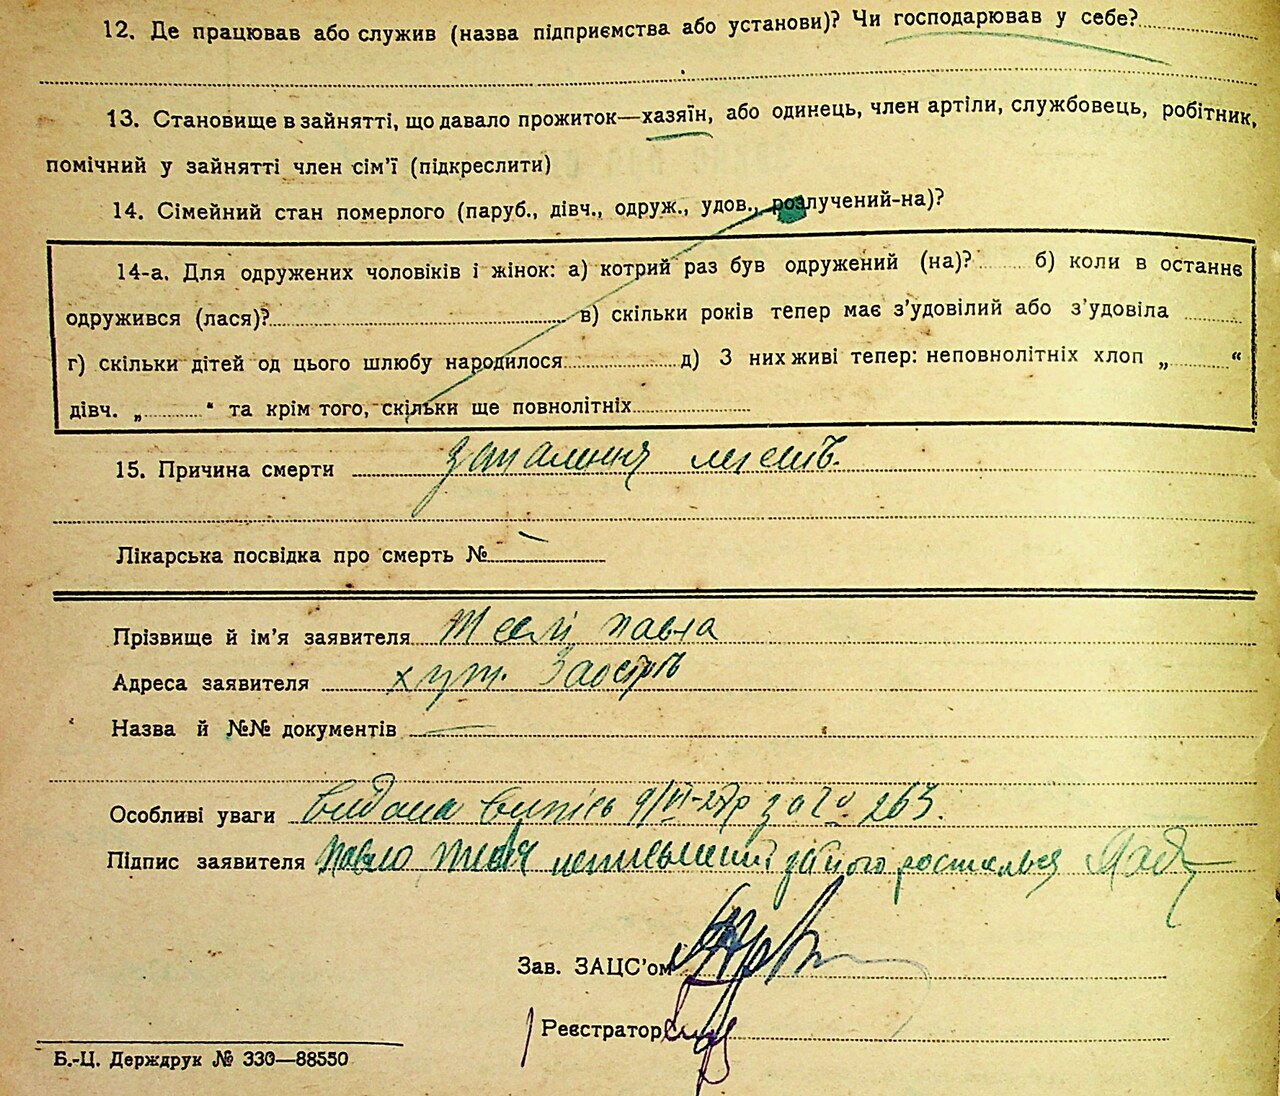 12. Де працював або служив (назва підприємства або установи)? Чи господарював у себе?
13. Становище в зайнятті, що давало прожиток—хазяїн, або одинець, член артіли, службовець, робітник,
помічний у зайнятті член сім'ї (підкреслити)
14. Сімейний стан померлого (паруб., дівч., одруж., удов., розлучений-на)?
14-а. Для одружених чоловіків і жінок: а) котрий раз був одружений (на)? б) коли в останнє
одружився (лася)? в) скільки років тепер має з'удовілий або з'удовіла
г) скільки дітей од цього шлюбу народилося д) З них живі тепер: неповнолітніх хлоп „ “
дівч. „ “ та крім того, скільки ще повнолітніх
15. Причина смерти запалення легенів.
Лікарська посвідка про смерть №
Прізвище й ім'я заявителя Павла
Адреса заявителя хут.
Назва й №№ документів
Особливі уваги Видана випись 9/VI-27р за № 263.
Підпис заявителя Павло неписьменний за його
Зав. ЗАЦС'ом
Реєстратор
Б.-Ц. Держдрук № 330—88550